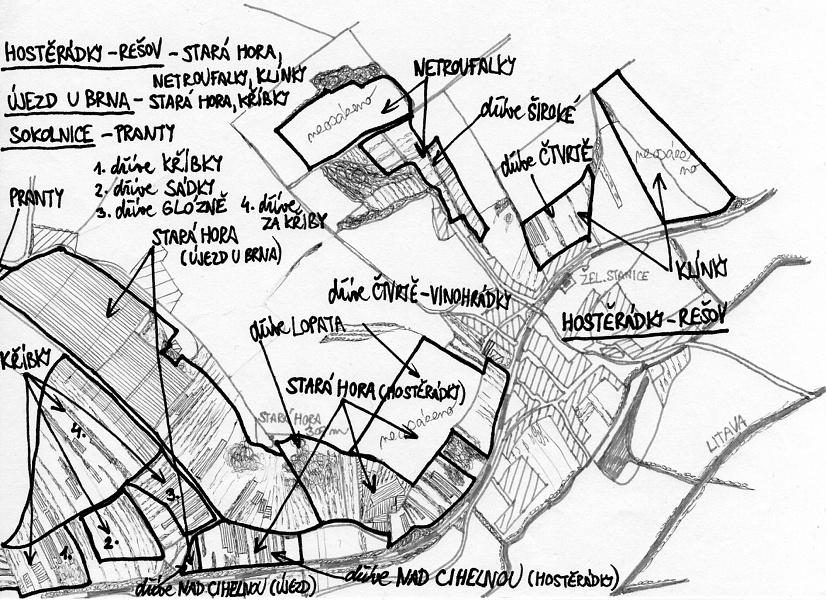 HOSTĚRÁDKY-REŠOV - STARÁ HORA,
NETROUFALKY, KLÍNKY
ÚJEZD U BRNA - STARÁ HORA, KŘÍBKY
SOKOLNICE - PRANTY
1. dříve KŘÍBKY
2. dříve SÁDKY
3. dříve GLOZNĚ
4. dříve
ZA KŘIBY
PRANTY
STARÁ HORA
(ÚJEZD U BRNA)
NETROUFALKY
dříve ŠIROKÉ
dříve ČTVRTĚ
neosázeno
neosázeno
KLÍNKY
ŽEL. STANICE
HOSTĚRÁDKY-REŠOV
dříve ČTVRTĚ-VINOHRÁDKY
dříve LOPATA
STARÁ HORA (HOSTĚRÁDKY)
neosázeno
STARÁ HORA
KŘÍBKY
4.
3.
1.
2.
LITAVA
dříve NAD CIHELNOU (ÚJEZD)
dříve NAD CIHELNOU (HOSTĚRÁDKY)